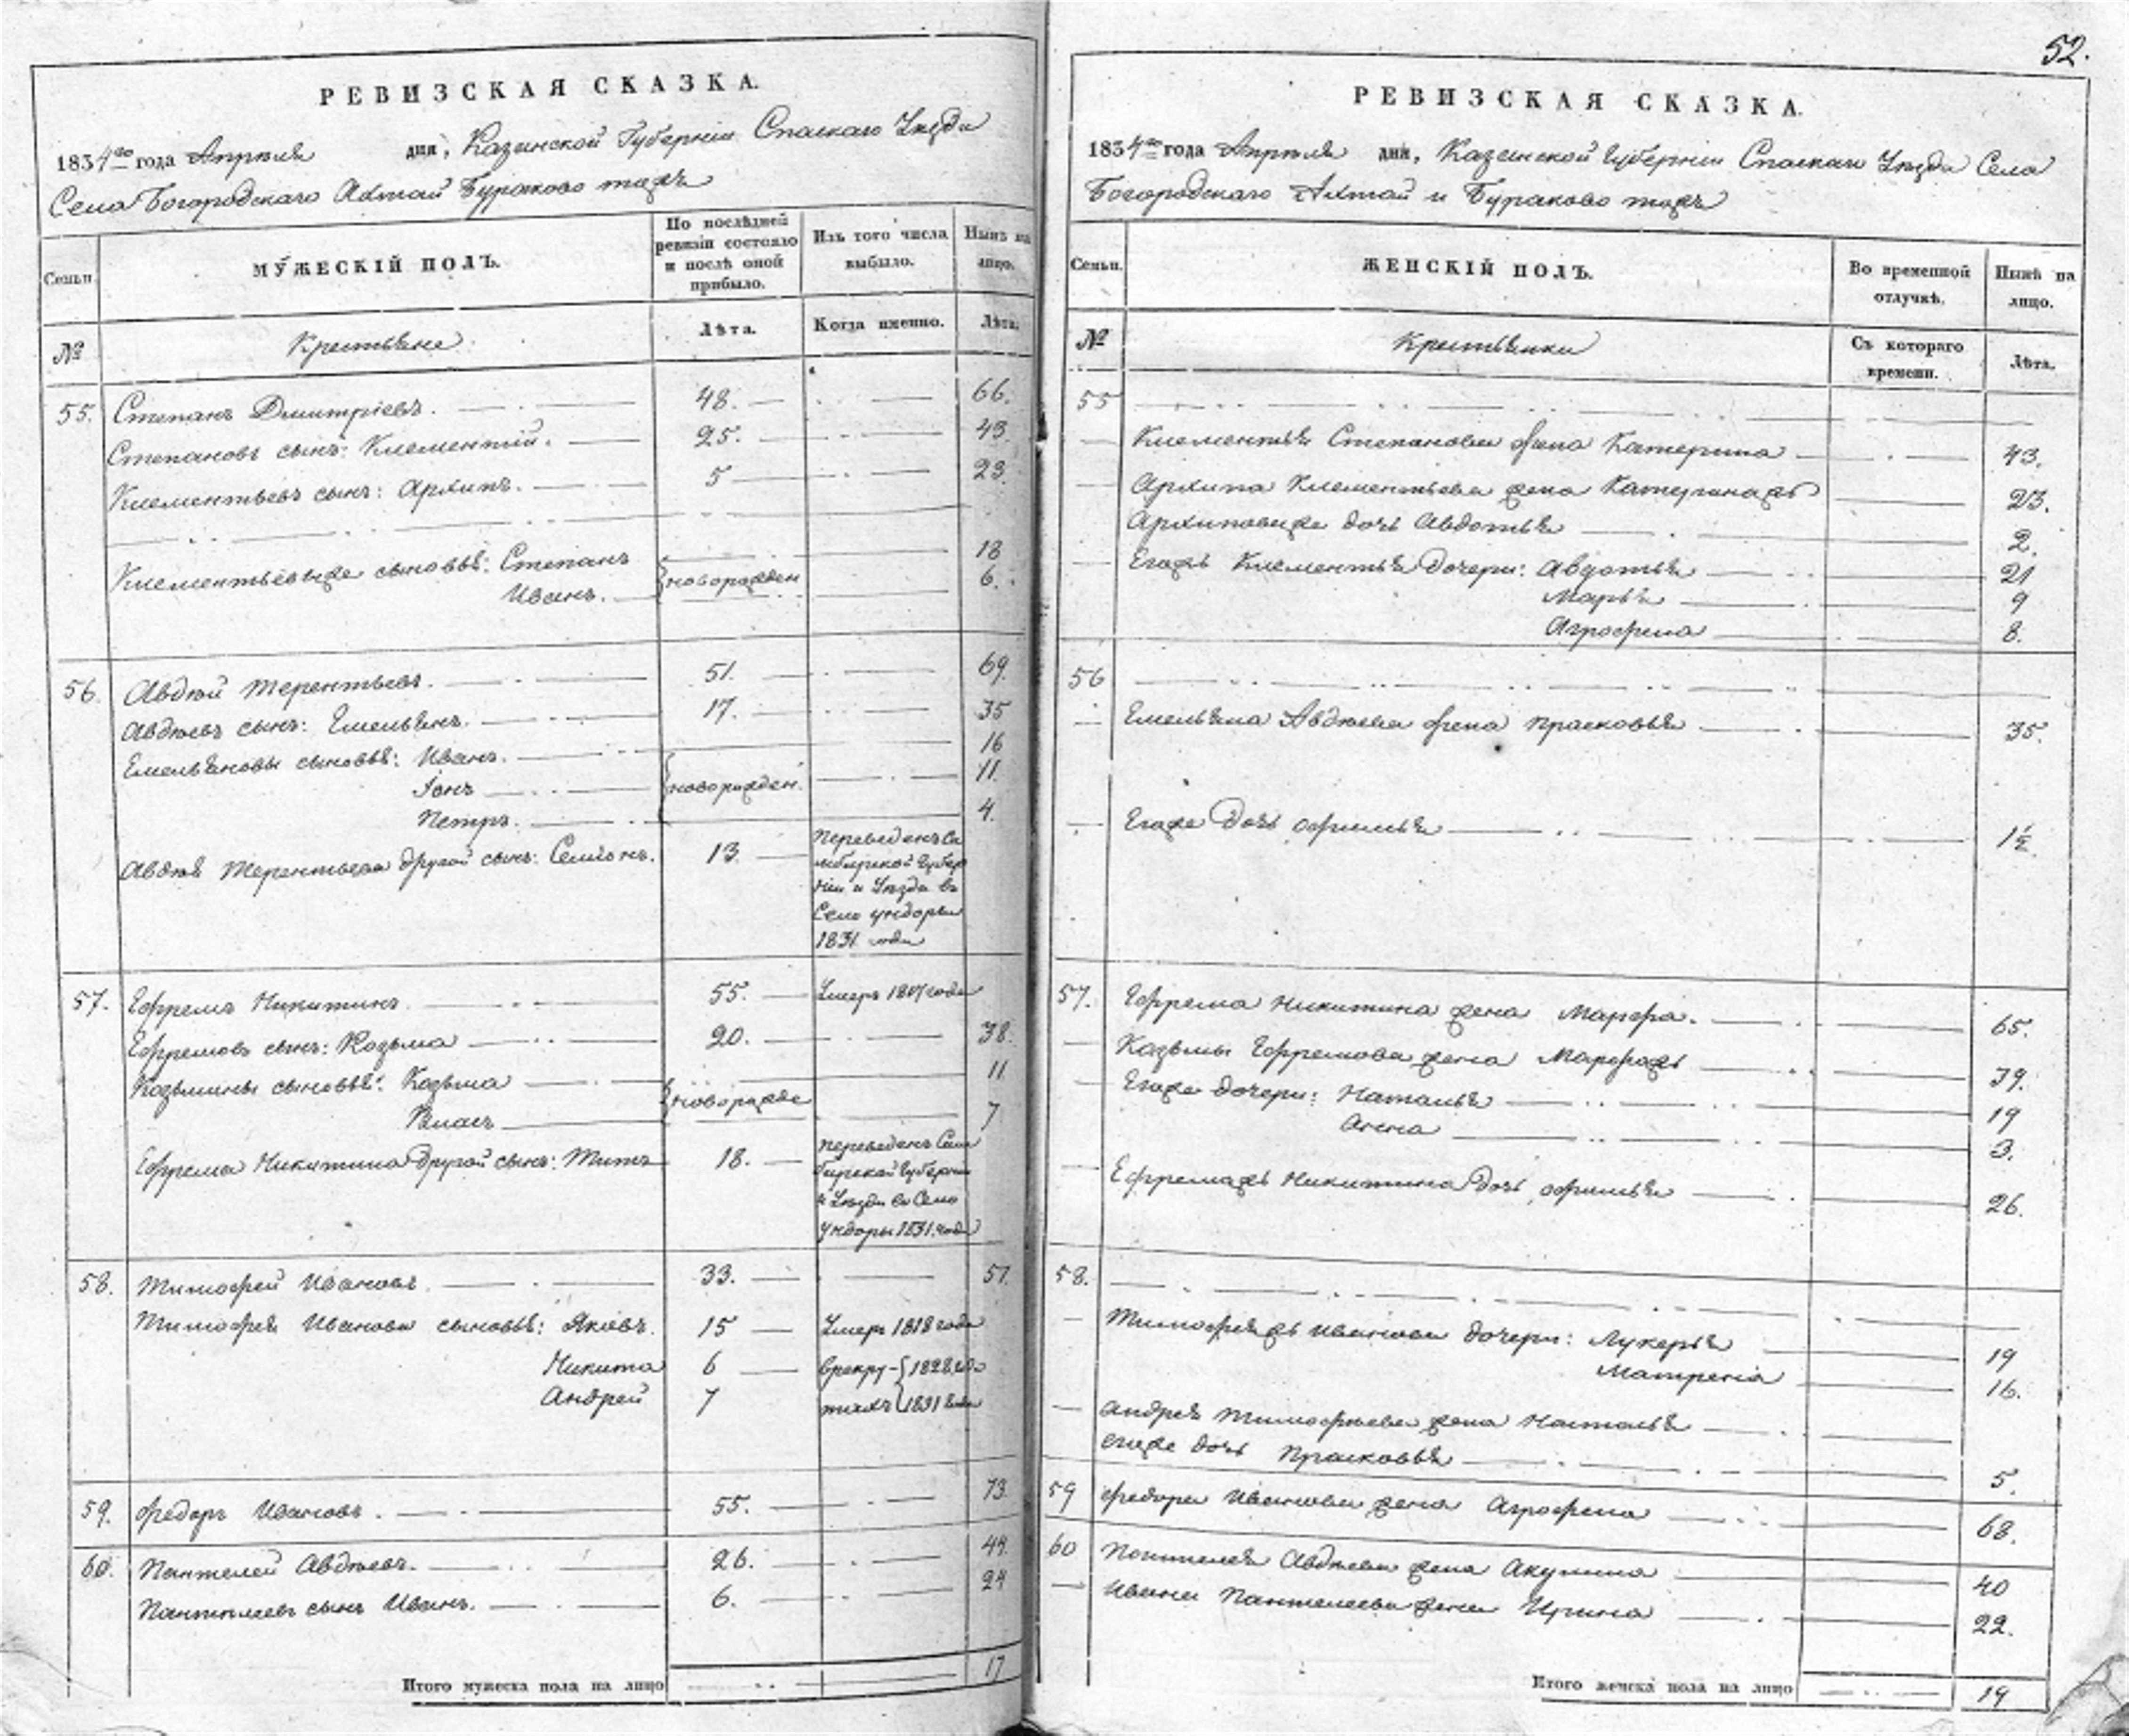 РЕВИЗСКАЯ СКАЗКА.
1834го года Апреля дня, Казанской Губерніи Спаскаго Уезда
Села Богородскаго Ахтай Бураково тожъ
Семьи.
МУЖЕСКІЙ ПОЛЪ.
По послѣдней ревизіи состояло и послѣ оной прибыло.
Изъ того числа выбыло.
Нынѣ на лицо.
№
Крестьяне
Лѣта.
Когда именно.
Лѣта.
55. Степанъ Дмитріевъ. 48. 66.
Степановъ сынъ: Клементій. 25. 43.
Клементьевъ сынъ: Архипъ. 5 23.
Клементьевы же сыновья: Степанъ новорожден 18
Иванъ. 6.
56. Авдѣй Терентьевъ. 51. 69.
Авдѣевъ сынъ: Емельянъ. 17. 35
Емельяновы сыновья: Иванъ. новорожден. 16
Іонъ 11.
Петръ. 4.
Авдѣя Терентьева другой сынъ: Семіонъ. 13.
Переведенъ Си
мбирской Губер
ніи и Уезда въ
Село Ундоры
1831 года
57. Ефремъ Никитинъ. 55. Умеръ года
Ефремовъ сынъ: Козьма 20. 38.
Козьмины сыновья: Козьма новорожде 11
Власъ 7
Ефрема Никитина другой сынъ: Титъ 18.
переведенъ Сим
бирской Губерни
и Уезда въ Село
Ундоры 1831 года
58. Тимофей Ивановъ. 33. 51.
Тимофея Иванова сыновья: Яковъ. 15 Умеръ 1818 года
Никита 6 врекру- 1828 года
Андрей 7 тахъ 1831 года
59. Федоръ Ивановъ. 55. 73.
60. Пантелей Авдѣевъ. 26. 44.
Пантелеевъ сынъ Иванъ. 6. 24
Итого мужеска пола на лицо 17
52.
РЕВИЗСКАЯ СКАЗКА.
1834го года Апреля дня, Казанской Губерніи Спаскаго Уезда Села
Богородскаго Ахтай и Бураково тожъ
Семьи.
ЖЕНСКІЙ ПОЛЪ.
Во временной отлучкѣ.
Нынѣ на лицо.
№
Крестьянки
Съ котораго времени.
Лѣта.
55
Клементья Степанова жена Катерина 43.
Архипа Клементьева жена Катерина жъ 23.
Архиповы же дочь Авдотья 2.
Егожъ Клементья дочери: Авдотья 21
Марья 9
Агрофена 8.
56
Емельяна Авдѣева жена Прасковья 35.
Егоже дочь Офимья 1½
57. Ефрема Никитина жена Марфа. 65.
Козьмы Ефремова жена Марфа жъ 39.
Егоже дочери: Наталья 19
Анна 3.
Ефрема жъ Никитина дочь Офимья 26.
58.
Тимофея жъ Иванова дочери: Лукерья 19
Матрена 16.
Андрея Тимофѣева жена Наталья
егоже дочь Прасковья 5.
59 Федора Иванова жена Агрофена 68.
60 Пантелея Авдѣева жена Акулина 40
Ивана Пантелеева жена Ирина 22.
Итого женска пола на лицо 19